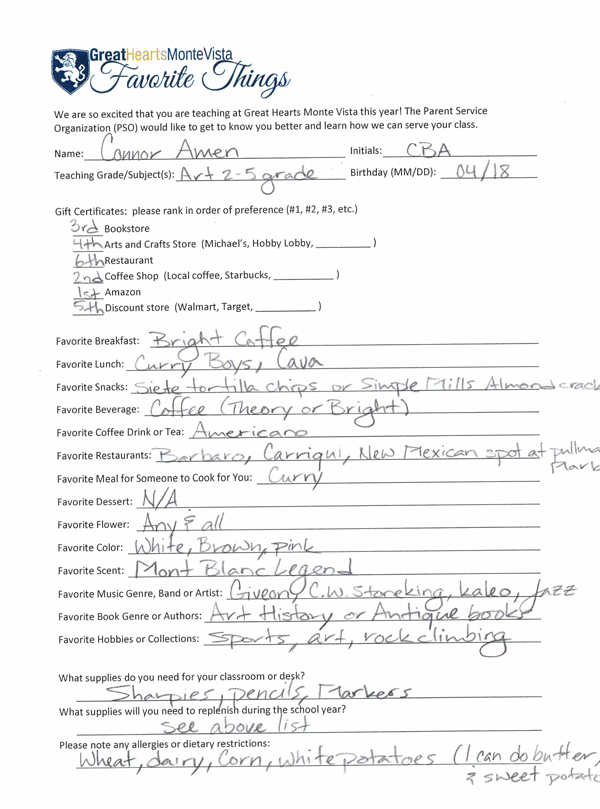 GreatHeartsMonteVista
Favorite Things
We are so excited that you are teaching at Great Hearts Monte Vista this year! The Parent Service
Organization (PSO) would like to get to know you better and learn how we can serve your class.
Name: Connor Amen Initials: CBA
Teaching Grade/Subject(s): Art 2-5 grade Birthday (MM/DD): 04/18
Gift Certificates: please rank in order of preference (#1, #2, #3, etc.)
3rd Bookstore
4th Arts and Crafts Store (Michael's, Hobby Lobby, __________ )
6th Restaurant
2nd Coffee Shop (Local coffee, Starbucks, __________ )
1st Amazon
5th Discount store (Walmart, Target, __________ )
Favorite Breakfast: Bright Coffee
Favorite Lunch: Curry Boys, Cava
Favorite Snacks: Siete tortilla chips or Simple Mills Almond crack
Favorite Beverage: Coffee (Theory or Bright)
Favorite Coffee Drink or Tea: Americano
Favorite Restaurants: Barbaro, Carriqui, New Mexican spot at pullma
Mark
Favorite Meal for Someone to Cook for You: Curry
Favorite Dessert: N/A
Favorite Flower: Any & all
Favorite Color: White, Brown, pink
Favorite Scent: Mont Blanc Legend
Favorite Music Genre, Band or Artist: Giveon, C.W. Stoneking, Kaleo, Jazz
Favorite Book Genre or Authors: Art History or Antique books
Favorite Hobbies or Collections: sports, art, rock climbing
What supplies do you need for your classroom or desk?
Sharpies, pencils, Markers
What supplies will you need to replenish during the school year?
see above list
Please note any allergies or dietary restrictions:
Wheat, dairy, Corn, white potatoes (I can do butter,
& sweet potato